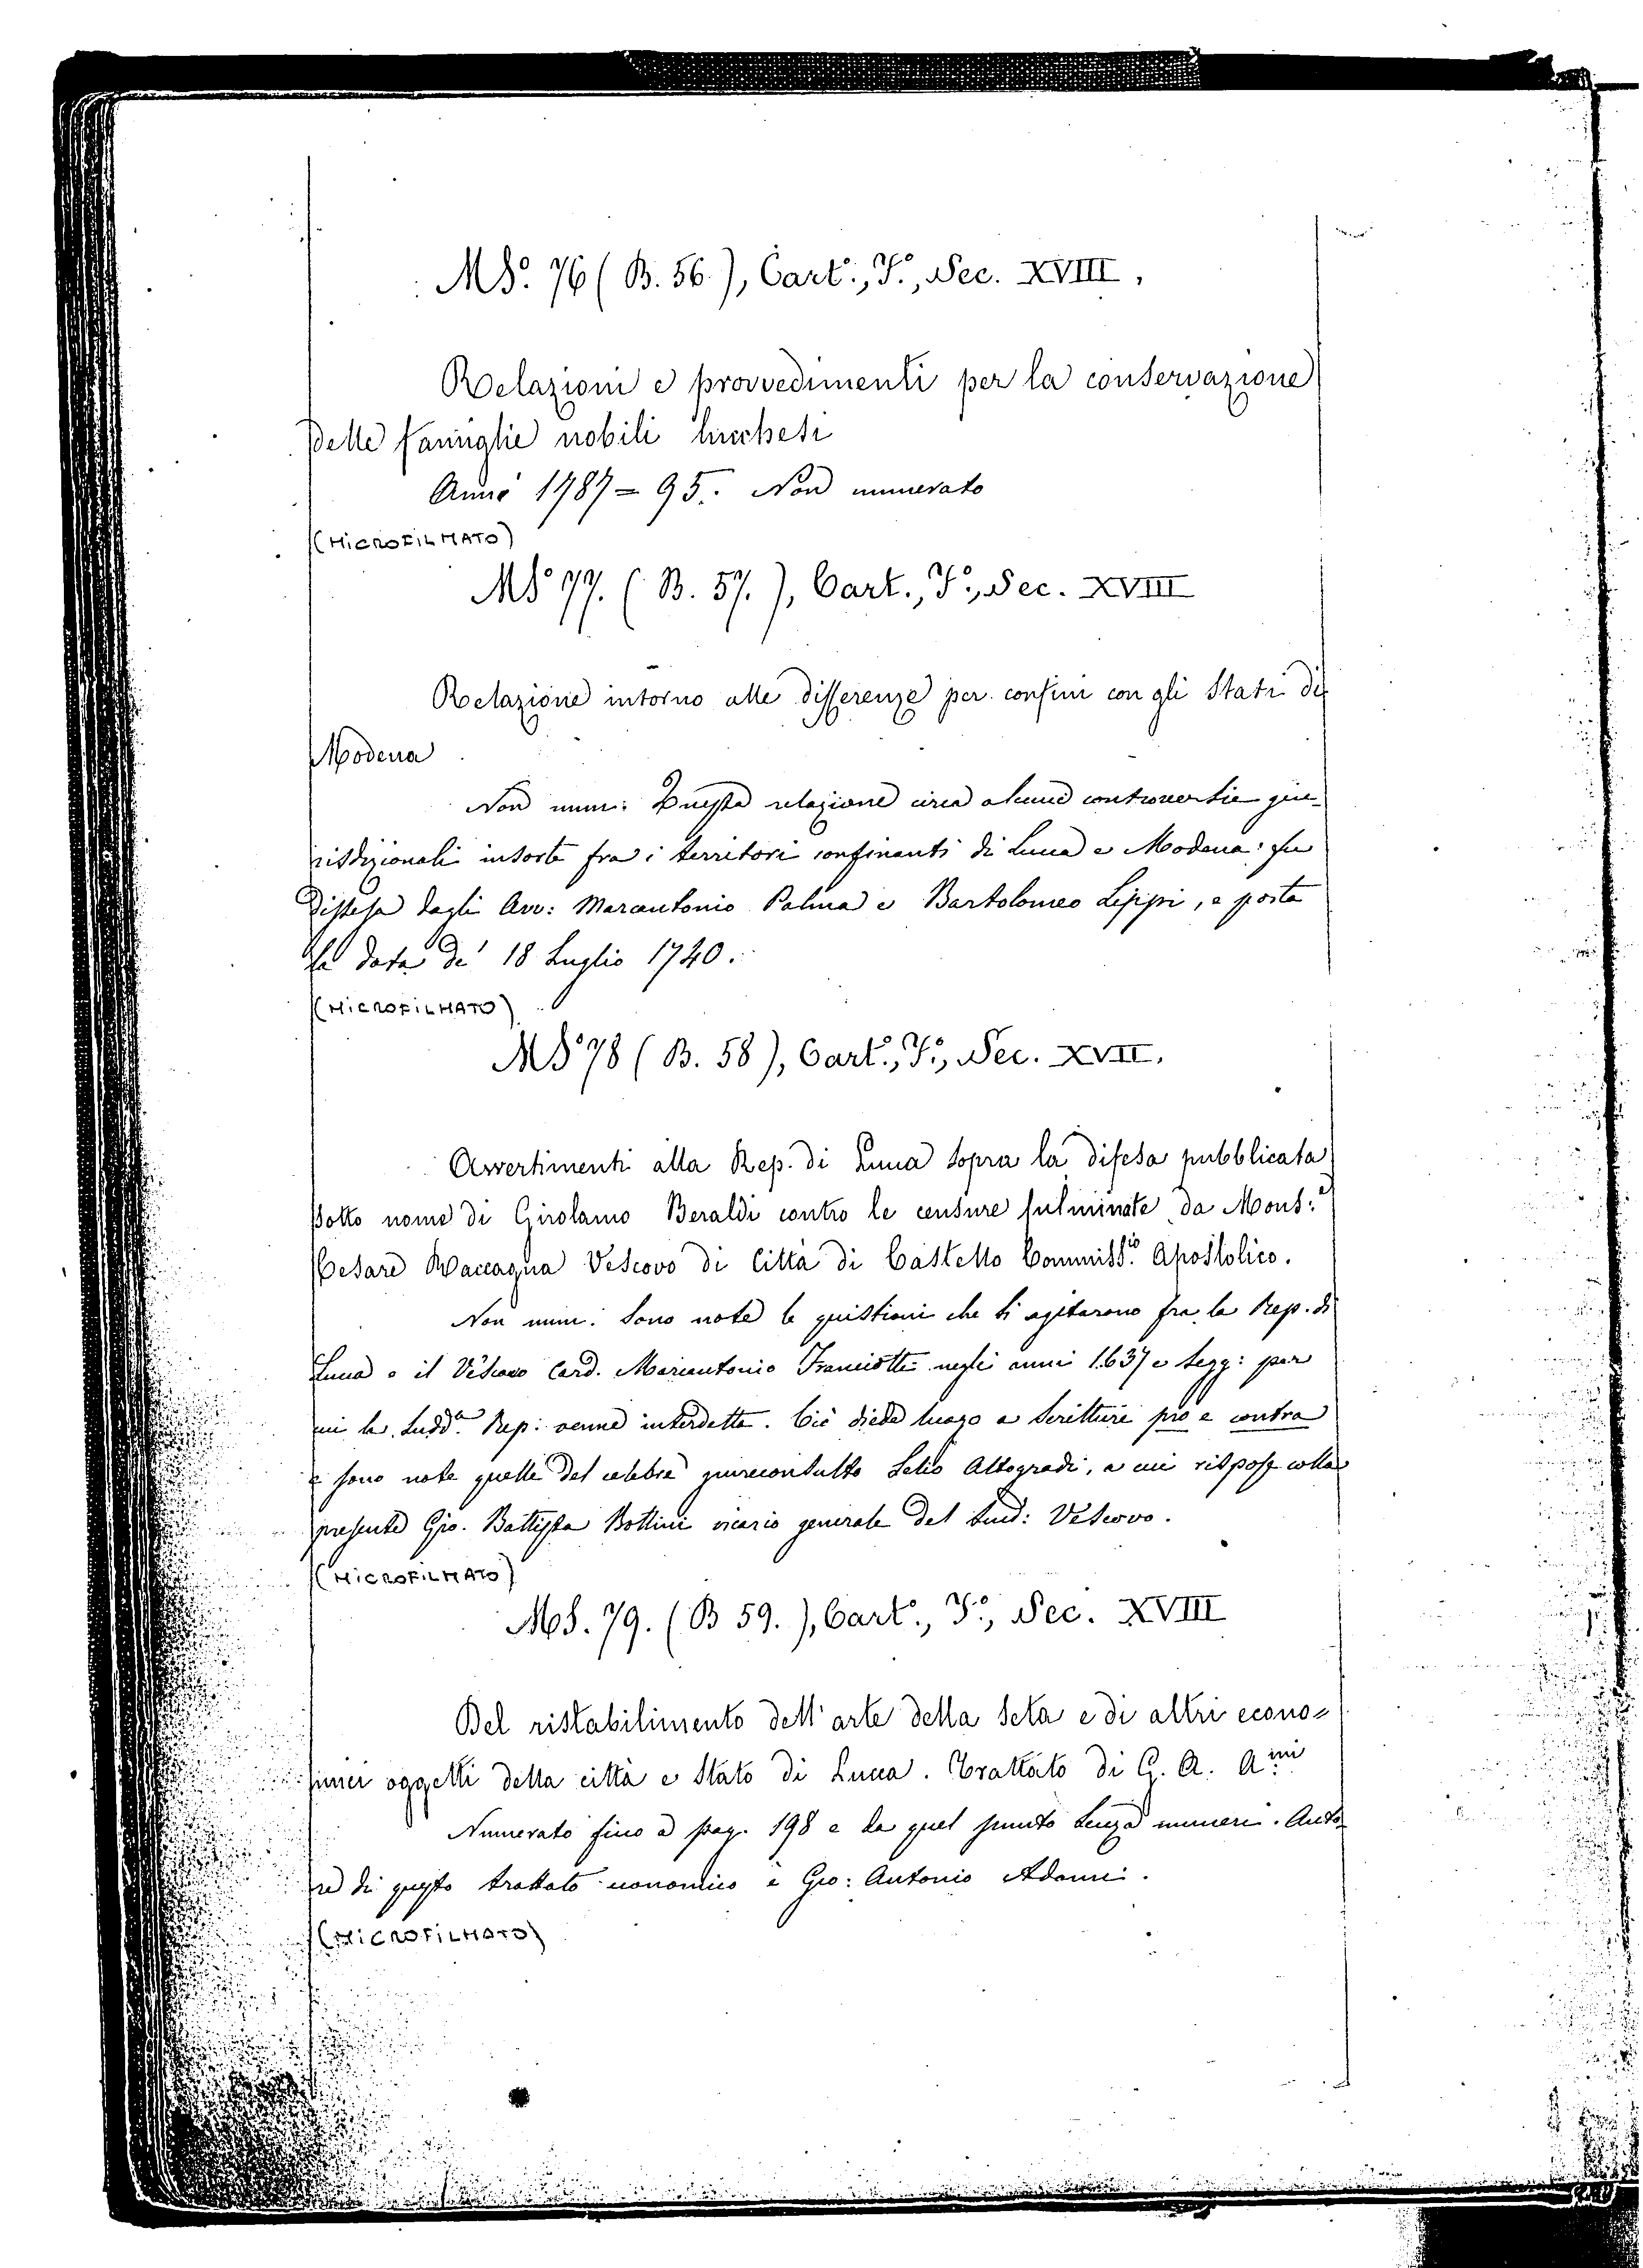 Ms. 76 (B. 56.), Cart., F.°, Sec. XVIII,
Relazioni e provvedimenti per la conservazione
delle famiglie nobili lucchesi
Anno 1787=95. Non numerato
(MICROFILMATO)
Ms 77. (B. 57.), Cart., F.°, Sec. XVIII
Relazione intorno alle differenze per confini con gli Stati di
Modena
Non num. Questa relazione circa alcune controversie giu-
risdizionali insorte fra i territori confinanti di Lucca e Modena fu
distesa dagli Avv: Marcantonio Palma e Bartolomeo Lippi, e porta
la data de' 18 Luglio 1740.
(MICROFILMATO)
Ms 78 (B. 58), Cart., F.°, Sec. XVII.
Avvertimenti alla Rep. di Lucca sopra la difesa pubblicata
sotto nome di Girolamo Beraldi contro le censure fulminate da Mons.r
Cesare Raccagna Vescovo di Città di Castello Commiss.io Apostolico.
Non num. Sono note le quistioni che si agitarono fra la Rep. di
Lucca e il Vescovo Card. Marcantonio Franciotti negli anni 1637 e segg: per
cui la sudd.a Rep: venne interdetta. Ciò diede luogo a scritture pro e contra
e sono note quelle del celebre giureconsulto Lelio Altogradi, a cui rispose colla
presente Gio. Battista Bottini vicario generale del sud: Vescovo.
(MICROFILMATO)
Ms. 79. (B 59.), Cart., F.°, Sec. XVIII
Del ristabilimento dell'arte della seta e di altri econo=
mici oggetti della città e Stato di Lucca. Trattato di G. A. A.mi
Numerato fino a pag. 198 e da quel punto senza numeri. Auto
re di questo trattato economico è Gio: Antonio Adami.
(MICROFILMATO)